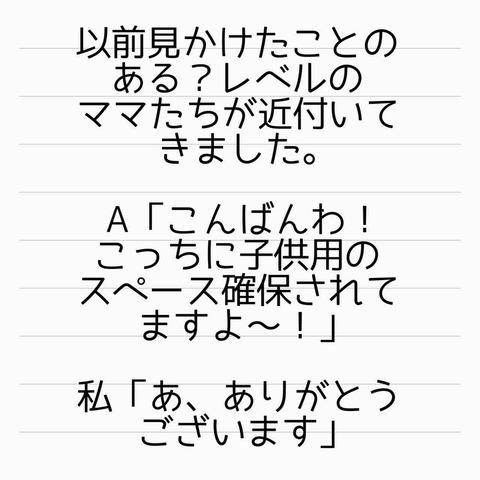 以前見かけたことの
ある？レベルの
ママたちが近付いて
きました。
A「こんばんわ！
こっちに子供用の
スペース確保されて
ますよ〜！」
私「あ、ありがとう
ございます」